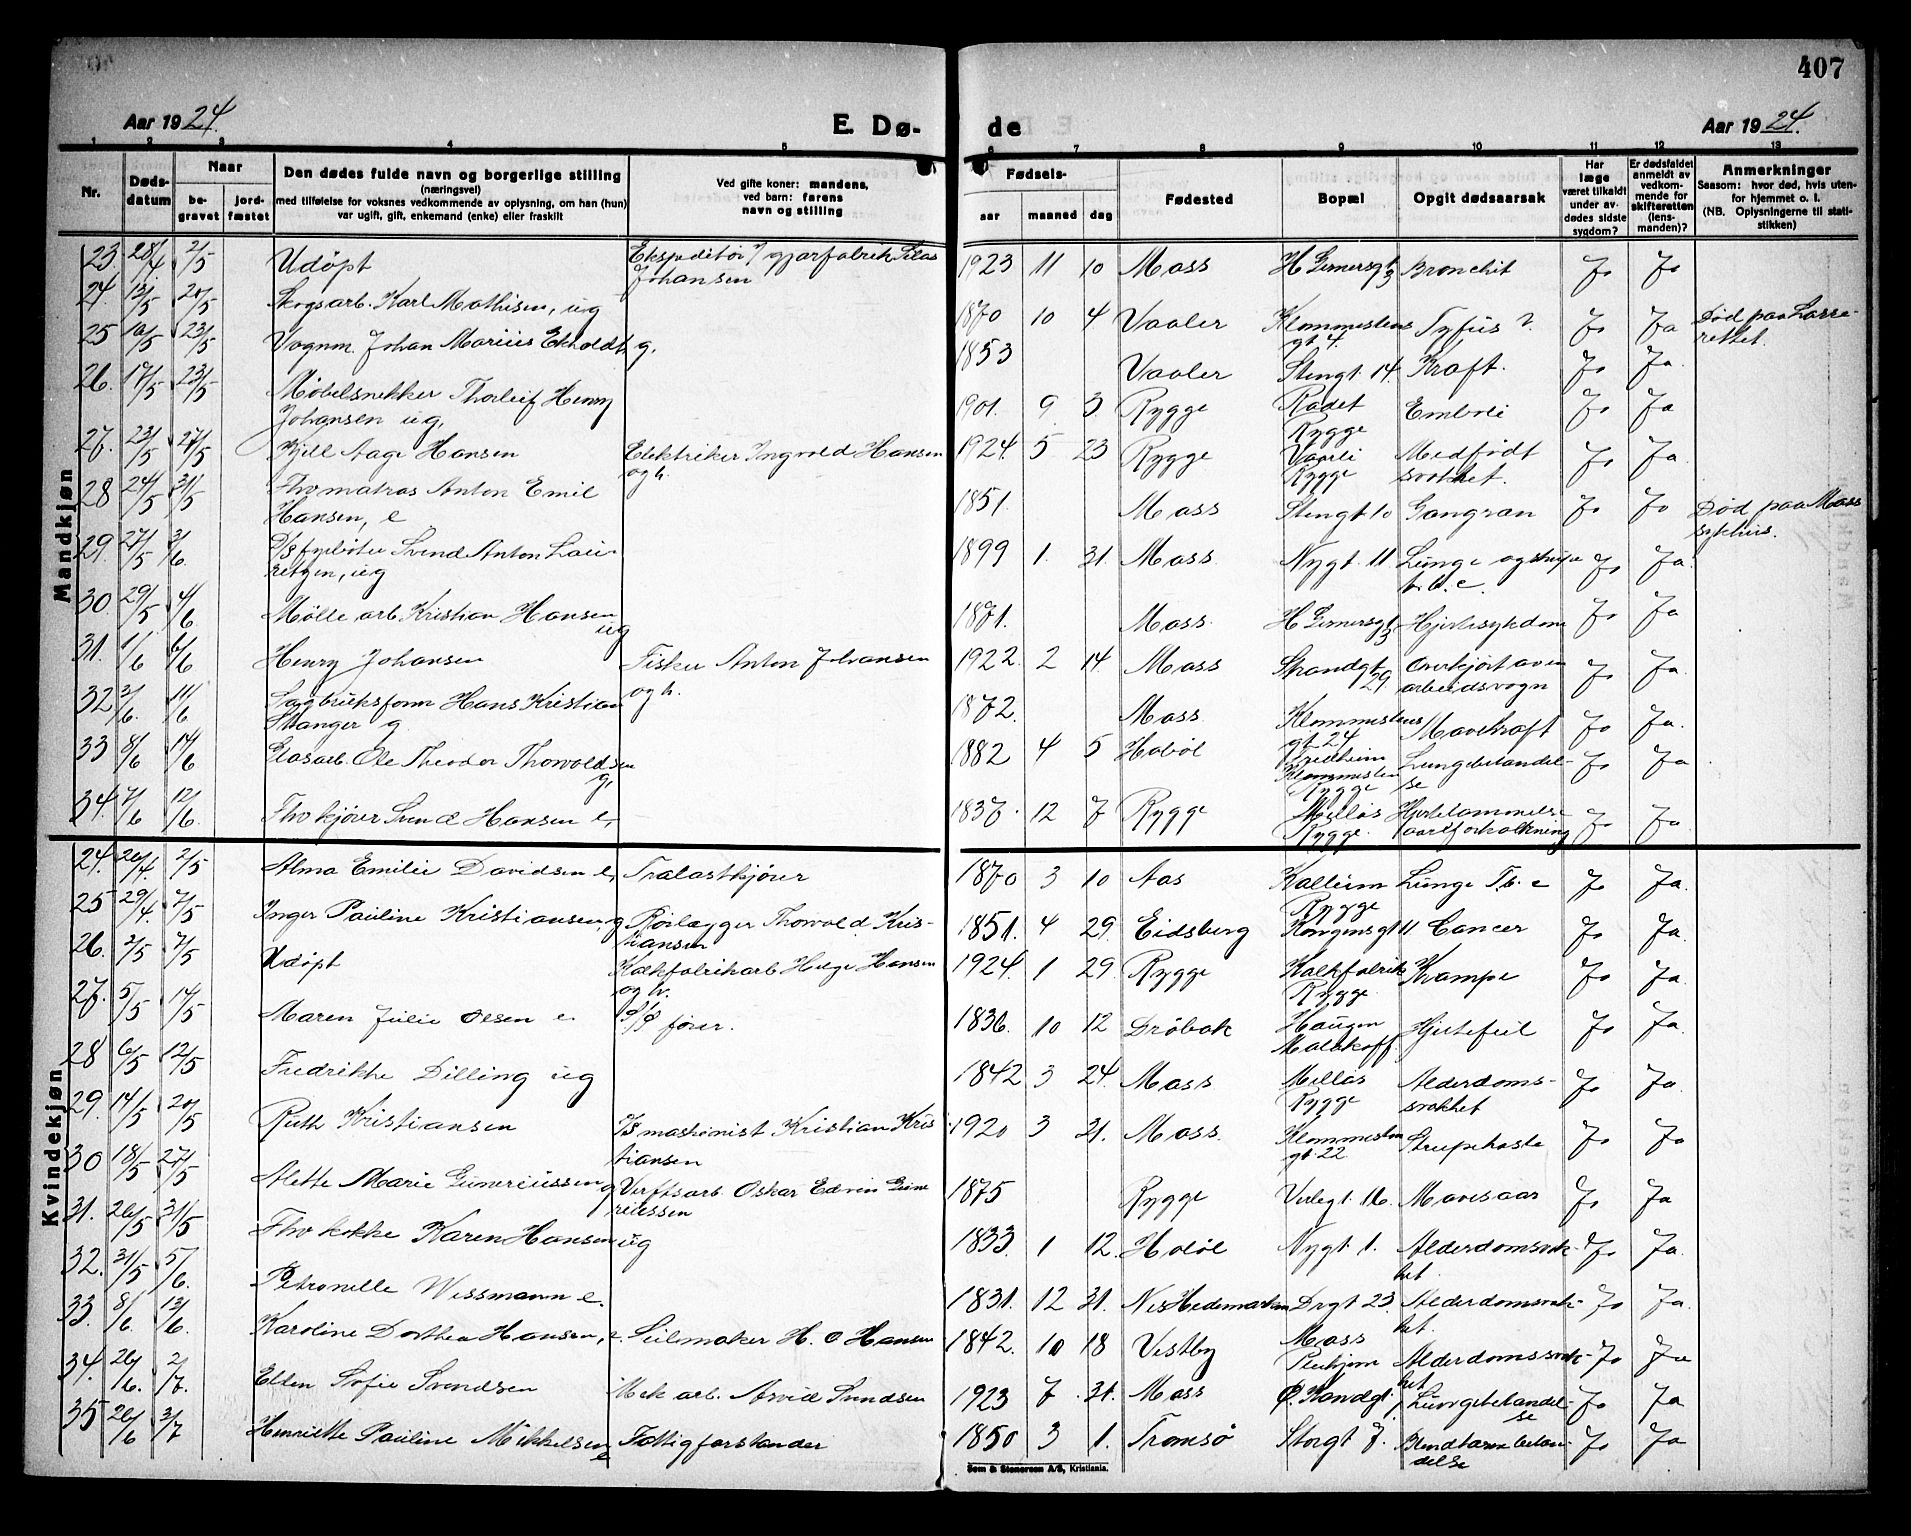 407
Aar 1924.
E. Dø-
de
Aar 1924.
1 2 3 4 5 6 7 8 9 10 11 12 13
Nr.
Døds-
datum
Naar
be-
gravet
jord-
fæstet
Den dødes fulde navn og borgerlige stilling
(næringsvei)
med tilføielse for voksnes vedkommende av oplysning, om han (hun)
var ugift, gift, enkemand (enke) eller fraskilt
Ved gifte koner: mandens,
ved barn: farens
navn og stilling
Fødsels-
aar maaned dag
Fødested
Bopæl
Opgit dødsaarsak
Har
læge
været tilkaldt
under av-
dødes sidste
sygdom?
Er dødsfaldet
anmeldt av
vedkom-
mende for
skifteretten
(lens-
manden)?
Anmerkninger
Saasom: hvor død, hvis uten-
for hjemmet o. l.
(NB. Oplysningerne til stati-
stikken)
Mandkjøn
23 28/4 2/5 Udøpt Johansen 1923 11 10 Moss H Gernersgt 3 Bronchit Ja Ja
24 13/5 20/5 Skogsarb. Karl Mathisen, ug 1870 10 4 Vaaler Klommestens gt 4. Tyfus ? Ja Ja Død paa Lasse-
rettet.
25 10/5 23/5 Vognm. Johan Marius Ekholdt g. 1853 Vaaler Stengt. 14. Kraft. Ja Ja.
26. 17/5 23/5 Møbelsnekker Thorleif Henry
Johansen ug. 1901. 9 3 Rygge Radet Rygge Emboli Ja Ja
27. 23/5 27/5 Kjell Aage Hansen Elektriker Ingvold Hansen
og h. 1924. 5 23 Rygge Vaarli Rygge Medfødt
svakhet. Ja Ja.
28 24/5 31/5 Fhv matros Anton Emil
Hansen, e 1851. Moss Stengt 10 Gangræn Ja Ja Død paa Moss
sykehus.
29. 27/5 3/6 D/S fyrbøter Svend Anton Lau-
retzen, ug 1899 1. 31. Moss. Nygt. 11. Lunge og strupe
t.b.c. Ja Ja.
30. 29/5 4/6 Mølle arb Kristian Hansen
ug 1871. Moss. H Gernersgt 3. Hjertesykdom Ja Ja
31. 1/6 6/6 Henry Johansen Fisker Anton Johansen
og h. 1922. 2 14. Moss Strandgt 29. Overkjørt av en
arbeidsvogn Ja Ja.
32 3/6. 11/6 Sagbruksform Hans Kristian
Stanger g. 1872. Moss. Klommestens
gt. 24 Mavekraft Ja Ja.
33 8/6 14/6 Glasarb. Ole Theodor Thorvaldsen
g. 1882 4 5 Hobøl Klommesten
Rygge Lungebetændel-
se Ja Ja
34. 7/6 12/6. Fhv kjører Svend Hansen e. 1837. 12 7 Rygge Melløs
Rygge. Hjertelammelse
aareforkalkning Ja Ja.
Kvindekjøn
24. 26/4. 2/5 Alma Emilie Davidsen e. Trælastkjører 1870 3 10 Aas Kalleium
Rygge Lunge Tb. c Ja Ja.
25 29/4. 7/5 Inger Pauline Kristiansen, g Rørlægger Thorvald Kris-
tiansen 1851. 4 29. Eidsberg Kongensgt 11 Cancer Ja Ja.
26. 2/5 7/5 Udøpt Kalkfabrikarb Helge Hansen
og h. 1924. 1 29. Rygge Kalkfabrik
Rygge. Krampe Ja Ja
27. 5/5 14/5 Maren Julie Olsen e. D/S fører. 1836. 10 12 Drøbak Haugen
Malakoff Hjertefeil Ja Ja.
28 6/5 12/5 Fredrikke Dilling ug 1842 3 24. Moss Melløs
Rygge Alderdoms-
svakhet Ja Ja.
29. 14/5 20/5 Ruth Kristiansen D/S maskinist Kristian Kris
tiansen 1920 3 21. Moss. Klommesten
gt 22 Strupehoste Ja Ja
30 18/5 27/5 Alette Marie Gunerius­sen g Verftsarb Oskar Edvin Gune
riussen 1875 Rygge Verlegt. 16. Mavesaar Ja Ja
31. 26/5 31/5 Fhv kokke Karen Hansen ug 1833. 1 12. Hobøl Nygt. 1. Alderdomsvak-
het. Ja Ja.
32. 31/5 5/6. Petronelle Wissmann e. 1831. 12 31. Nes Hedemarken Drgt 23. Alderdomsvak-
het. Ja Ja.
33. 8/6. 13/6 Karoline Dorthea Hansen, e. Seilmaker H. O Hansen 1842. 10 18 Vestby Moss
Pleiehjem Alderdomssvak-
het Ja Ja
34. 26/6. 2/7. Ellen Sofie Svendsen Mek arb. Arvid Svendsen 1923 7 31. Moss Ø. Kandgt Lungebetændel-
se Ja Ja
35 26/6 3/7 Henriette Pauline Mikkelsen
e Fattigforstander 1850 3 1. Tromsø Storgt 7. Blindtarmbetæn-
delse Ja Ja
Sem & Stenersen A/S, Kristiania.